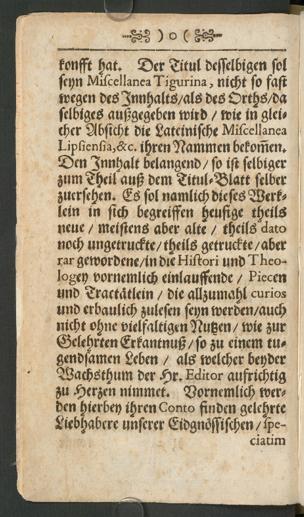 ) o (
konfft hat. Der Titul desselbigen sol
seyn Miscellanea Tigurina, nicht so fast
wegen des Innhalts/als des Orths/da
selbiges außgegeben wird / wie in glei-
cher Absicht die Lateinische Miscellanea
Lipsiensia,&c. ihren Nammen bekom̃en.
Den Innhalt belangend / so ist selbiger
zum Theil auß dem Titul-Blatt selber
zuersehen. Es sol namlich dieses Werk-
lein in sich begreiffen heuffige theils
neue / meistens aber alte / theils dato
noch ungetruckte/theils getruckte/aber
rar gewordene/in die Histori und Theo-
logey vornemlich einlauffende / Piecen
und Tractätlein / die allzumahl curios
und erbaulich zulesen seyn werden/auch
nicht ohne vielfaltigen Nutzen/ wie zur
Gelehrten Erkantnuß/ so zu einem tu-
gendsamen Leben / als welcher beyder
Wachsthum der Hr. Editor aufrichtig
zu Herzen nimmet. Vornemlich wer-
den hierbey ihren Conto finden gelehrte
Liebhabere unserer Eidgnössischen / spe-
ciatim